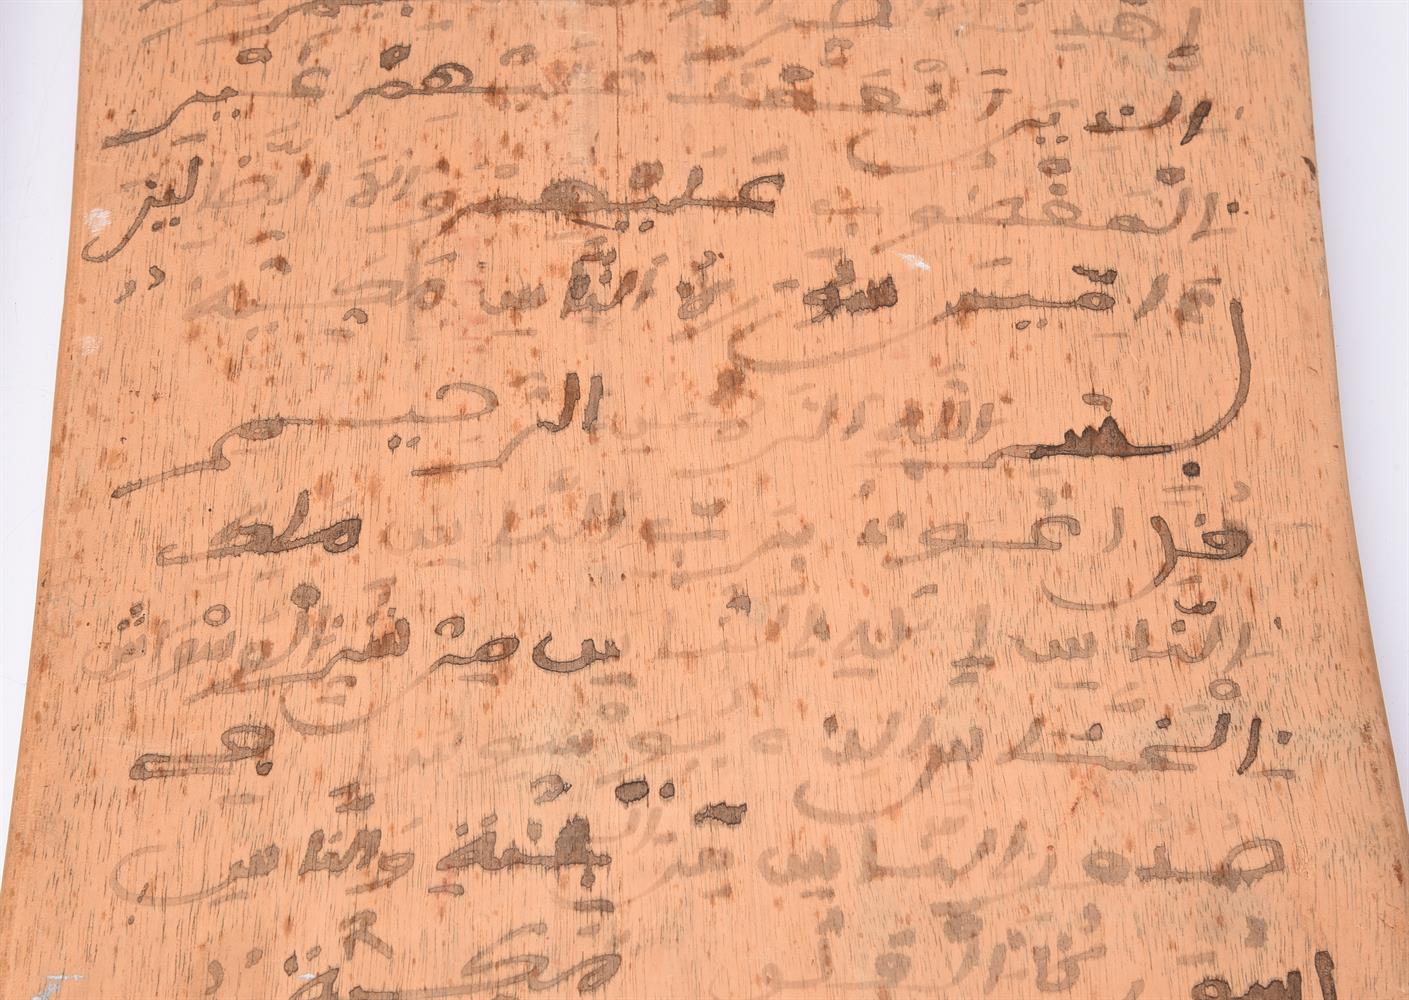 اهدنا
الذين أنعمت عليهم غير
المغضوب عليهم ولا الضالين
ءامين سورة الناس مكية
بسم الله الرحمن الرحيم
قل أعوذ برب الناس ملك
الناس إله الناس من شر الوسواس
الخناس الذي يوسوس في
صدور الناس من الجنة والناس
سورة الفلق مكية
بسم